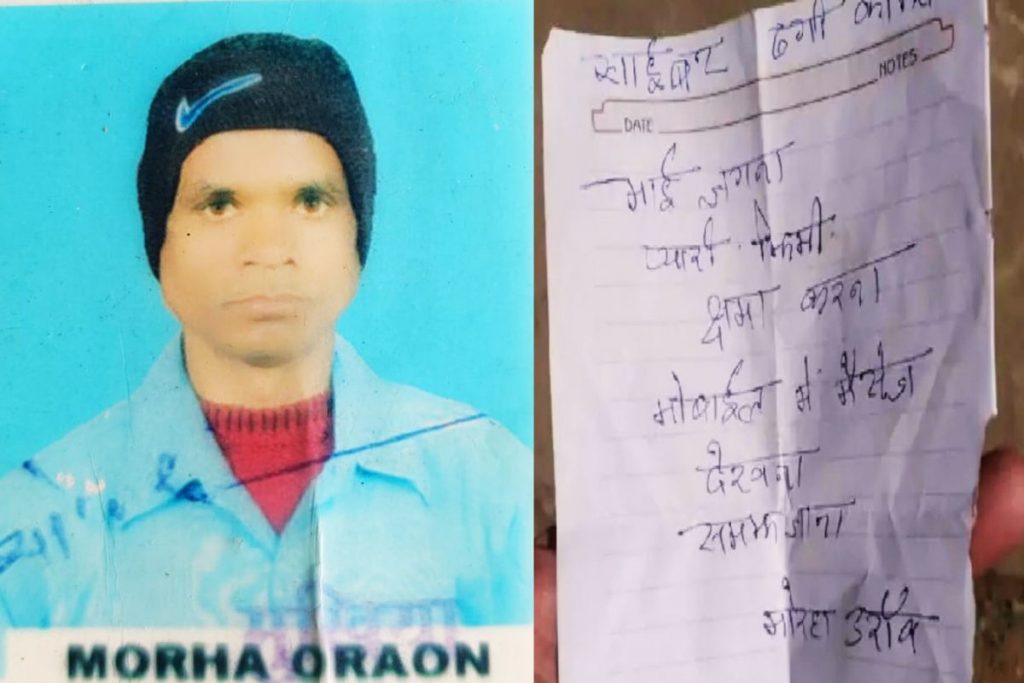 MORHA ORAON
साईबर ठगी
NOTES
DATE
भाई जगना
प्यारी
क्षमा करना
मोबाईल में मैसेज
देखना
समझ जाना
मोरहा उराँव